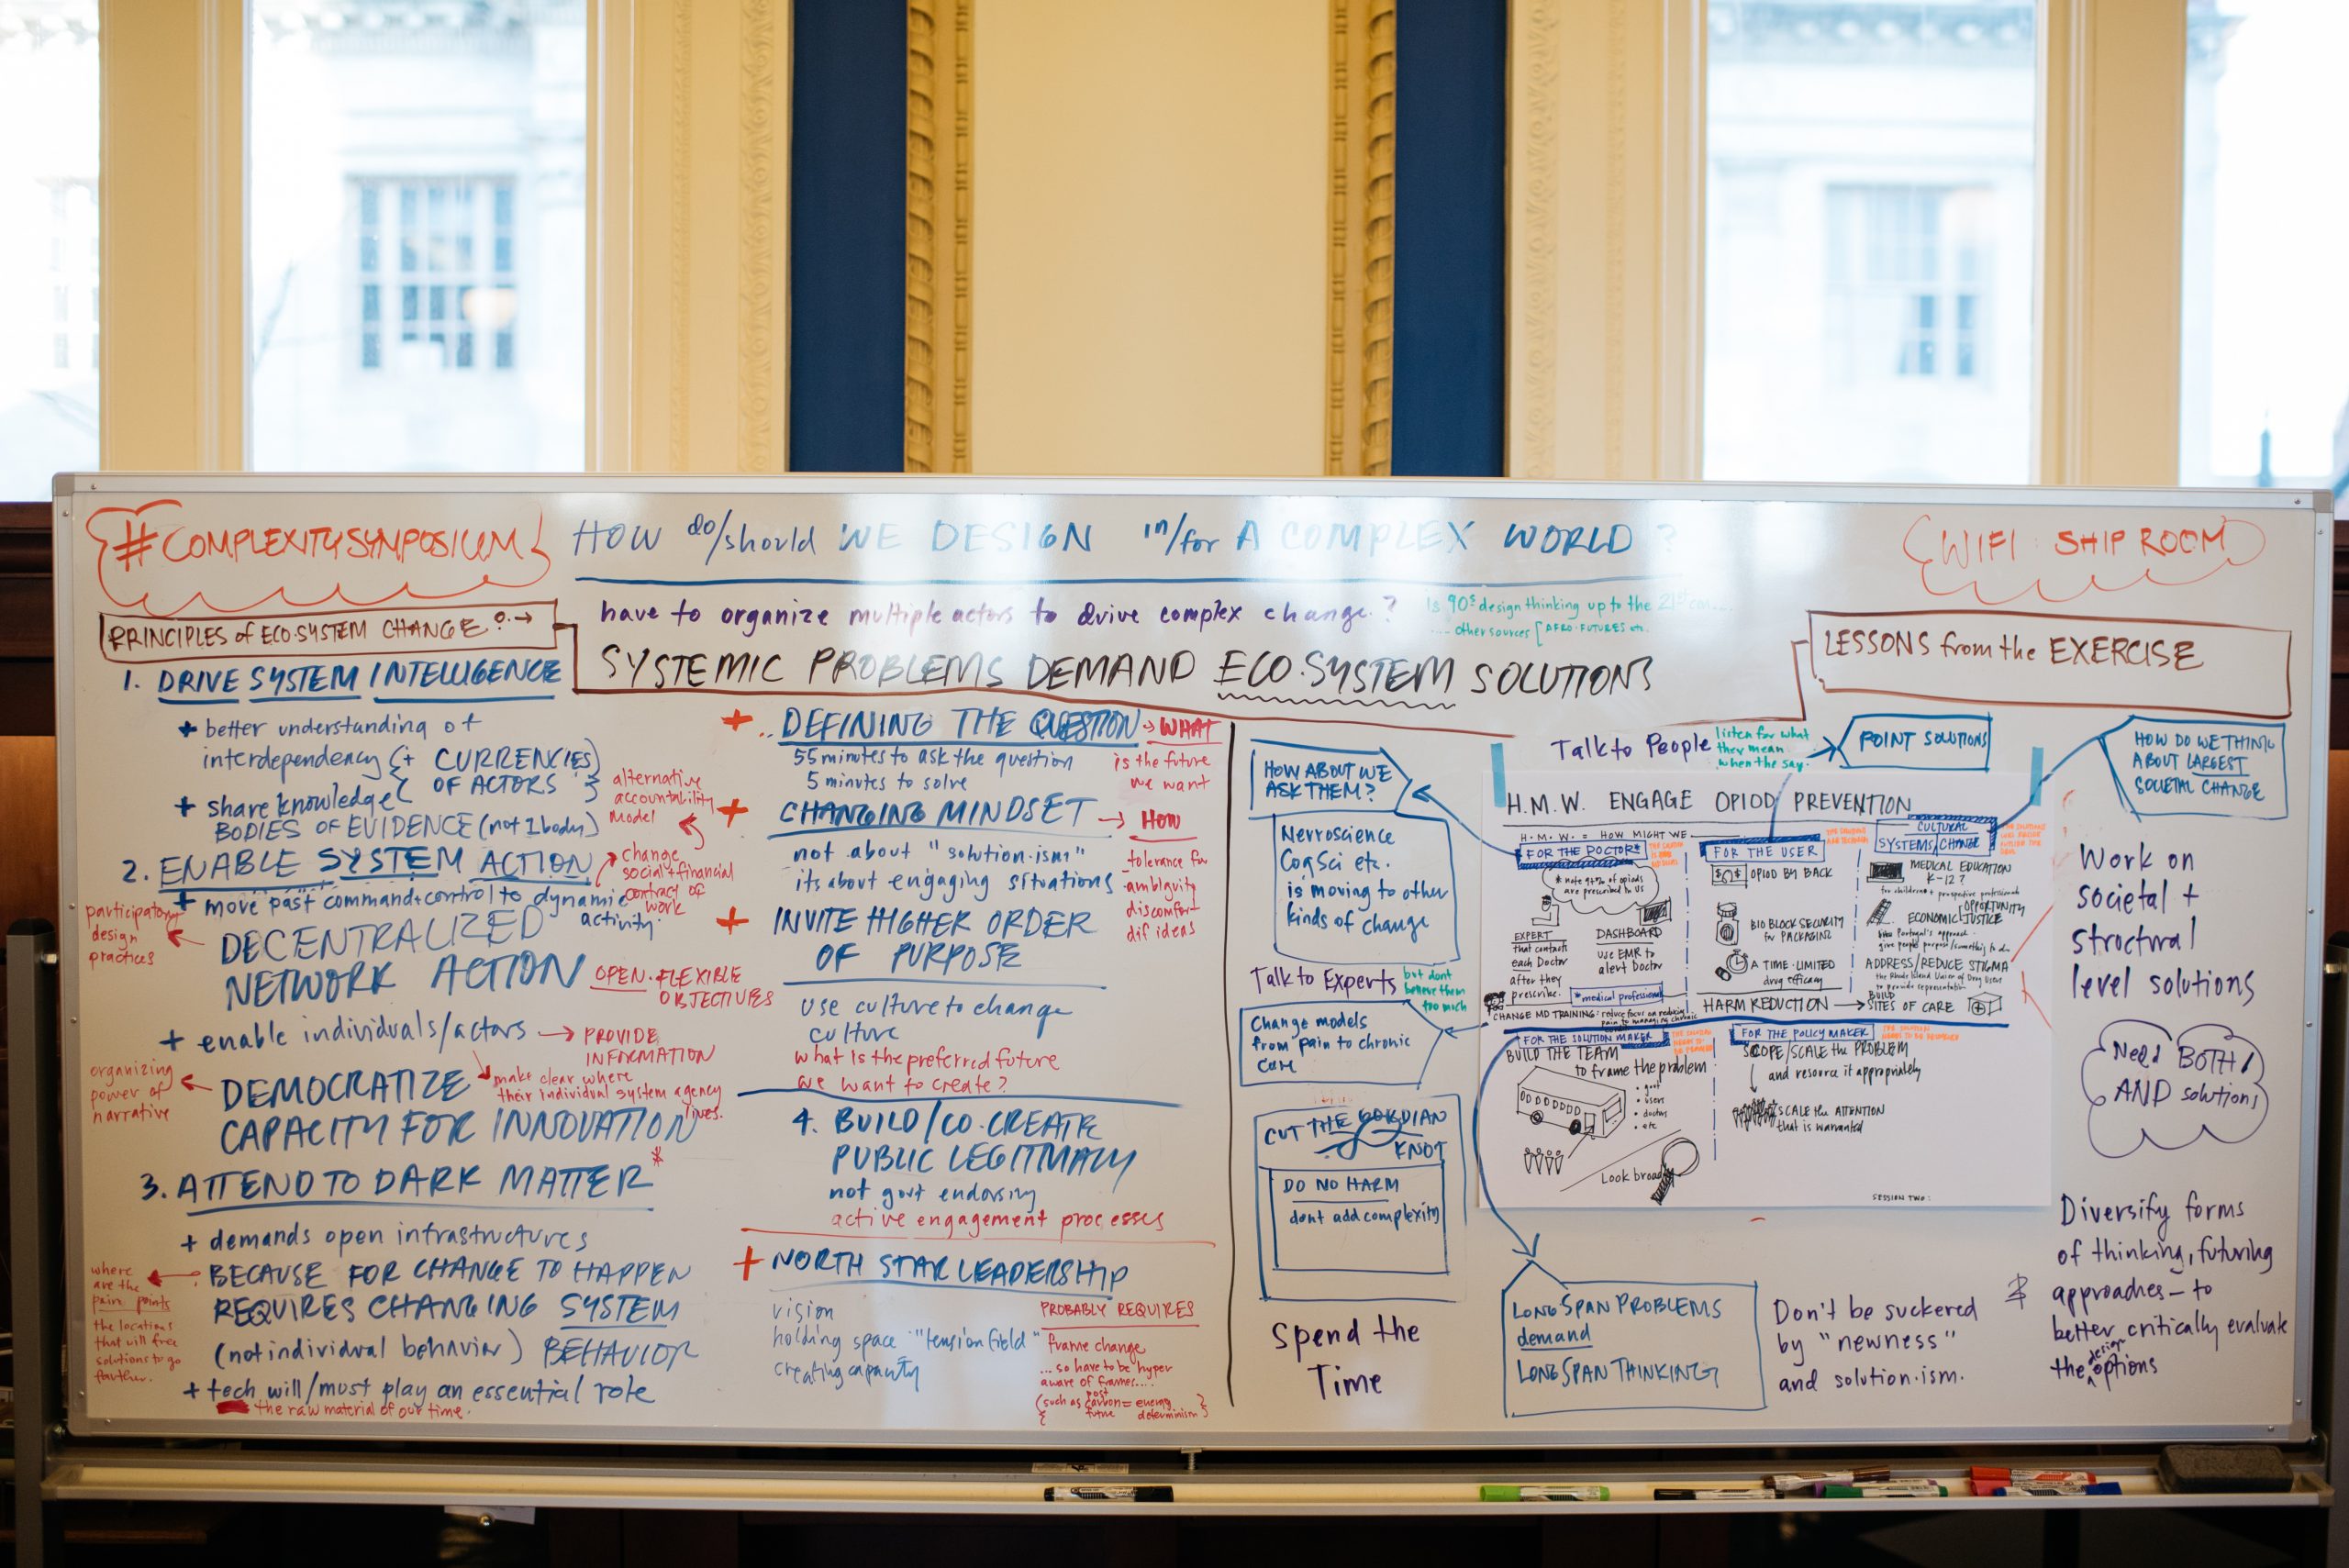 #COMPLEXITYSYMPOSIUM
HOW do/should WE DESIGN in/for A COMPLEX WORLD?
WIFI: SHIP ROOM
PRINCIPLES of ECO.SYSTEM CHANGE
have to organize multiple actors to drive complex change?
is 90s design thinking up to the 21st
other sources [AFRO-FUTURES etc.
SYSTEMIC PROBLEMS DEMAND ECO.SYSTEM SOLUTIONS
LESSONS from the EXERCISE
1. DRIVE SYSTEM INTELLIGENCE
+ better understanding of
interdependency (+ CURRENCIES
OF ACTORS)
+ share knowledge
BODIES OF EVIDENCE (not 1 body)
alternative
accountability
model
2. ENABLE SYSTEM ACTION
change
social + financial
contract of
work
+ move past command+control to dynamic
activity.
participatory
design
practices
DECENTRALIZED
NETWORK ACTION
OPEN. FLEXIBLE
OBJECTIVES
+ enable individuals/actors → PROVIDE
INFORMATION
make clear where
their individual system agency
lives.
organizing
power of
narrative
DEMOCRATIZE
CAPACITY FOR INNOVATION
3. ATTEND TO DARK MATTER*
+ demands open infrastructures
BECAUSE FOR CHANGE TO HAPPEN
REQUIRES CHANGING SYSTEM
(not individual behavior) BEHAVIOR
where
are the
pain points
the locations
that will free
solutions to go
further.
+ tech will/must play an essential role
the raw material of our time.
+ DEFINING THE QUESTION → WHAT
55 minutes to ask the question
5 minutes to solve
is the future
we want
+ CHANGING MINDSET → HOW
not about "solution.ism"
its about engaging situations
tolerance for
ambiguity
discomfort
dif ideas
+ INVITE HIGHER ORDER
OF PURPOSE
use culture to change
culture
what is the preferred future
we want to create?
4. BUILD/CO.CREATE
PUBLIC LEGITIMACY
not govt endorsing
active engagement processes
+ NORTH STAR LEADERSHIP
vision
holding space "tension field"
creating capacity
PROBABLY REQUIRES
frame change
...so have to be hyper
aware of frames....
(such as carbon = energy
past
future determinism)
HOW ABOUT WE
ASK THEM?
Neuroscience
CogSci etc.
is moving to other
kinds of change
Talk to Experts
but dont
believe them
too much
Change models
from pain to chronic
care
CUT THE GORDIAN
KNOT
DO NO HARM
dont add complexity
Spend the
Time
Talk to People
listen for what
they mean
when they say.
POINT SOLUTIONS
HOW DO WE THINK
ABOUT LARGEST
SOCIETAL CHANGE
H.M.W. ENGAGE OPIOD PREVENTION
H.M.W. = HOW MIGHT WE
FOR THE DOCTOR*
of opiods
are prescribed in US
EXPERT
that contacts
each Doctor
after they
prescribe.
DASHBOARD
use EMR to
alert Doctor
*medical professional
CHANGE MD TRAINING: reduce focus on reducing
pain to managing chronic
FOR THE USER
OPIOD BUY BACK
BIO BLOCK SECURITY
for PACKAGING
A TIME-LIMITED
drug efficacy
HARM REDUCTION → BUILD
SITES OF CARE
CULTURAL
SYSTEMS/CHANGE
MEDICAL EDUCATION
K-12?
ECONOMIC OPPORTUNITY
JUSTICE
Portugal's approach
give people purpose/something to do
ADDRESS/REDUCE STIGMA
the Rhode Island Union of Drug Users
to provide representation
FOR THE SOLUTION MAKER
BUILD THE TEAM
to frame the problem
• govt
• users
• doctors
• etc
Look broad
FOR THE POLICY MAKER
SCOPE/SCALE the PROBLEM
and resource it appropriately
SCALE the ATTENTION
that is warranted
SESSION TWO:
LONG SPAN PROBLEMS
demand
LONG SPAN THINKING
Don't be suckered
by "newness"
and solution.ism.
Work on
societal +
structural
level solutions
Need BOTH/
AND solutions
Diversify forms
of thinking, futuring
approaches – to
better critically evaluate
the design options